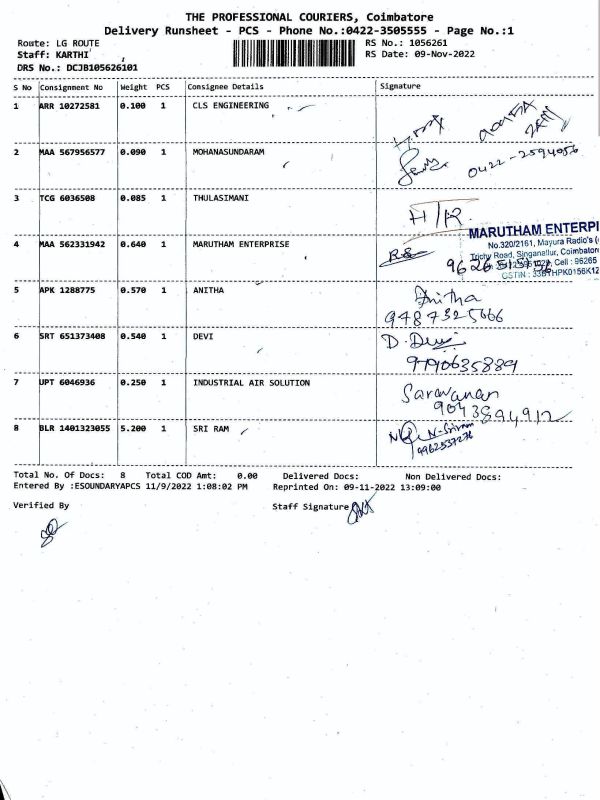 THE PROFESSIONAL COURIERS, Coimbatore
Delivery Runsheet - PCS - Phone No.:0422-3505555 - Page No.:1
Route: LG ROUTE RS No.: 1056261
Staff: KARTHI RS Date: 09-Nov-2022
DRS No.: DCJB105626101
S No Consignment No Weight PCS Consignee Details Signature
1 ARR 10272581 0.100 1 CLS ENGINEERING
2 MAA 567956577 0.090 1 MOHANASUNDARAM
0422-2594056
3 TCG 6036508 0.085 1 THULASIMANI
H/R
MARUTHAM ENTERPI
No.320/2161, Mayura Radio's (
4 MAA 562331942 0.640 1 MARUTHAM ENTERPRISE
Trichy Road, Singanallur, Coimbatore
Cell : 96265
GSTIN : 33BTHPK0156K12
5 APK 1288775 0.570 1 ANITHA Anitha
9487325666
6 SRT 651373408 0.540 1 DEVI D. Devi
9790635889
7 UPT 6046936 0.250 1 INDUSTRIAL AIR SOLUTION Saravanan
9043894912
8 BLR 1401323055 5.200 1 SRI RAM N-Sriram
9962537276
Total No. Of Docs: 8 Total COD Amt: 0.00 Delivered Docs: Non Delivered Docs:
Entered By :ESOUNDARYAPCS 11/9/2022 1:08:02 PM Reprinted On: 09-11-2022 13:09:00
Verified By Staff Signature